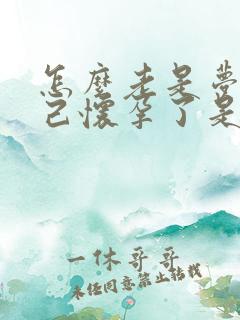 怎麼老是夢
己懷孕了是
一休哥哥
未经同意禁止转载